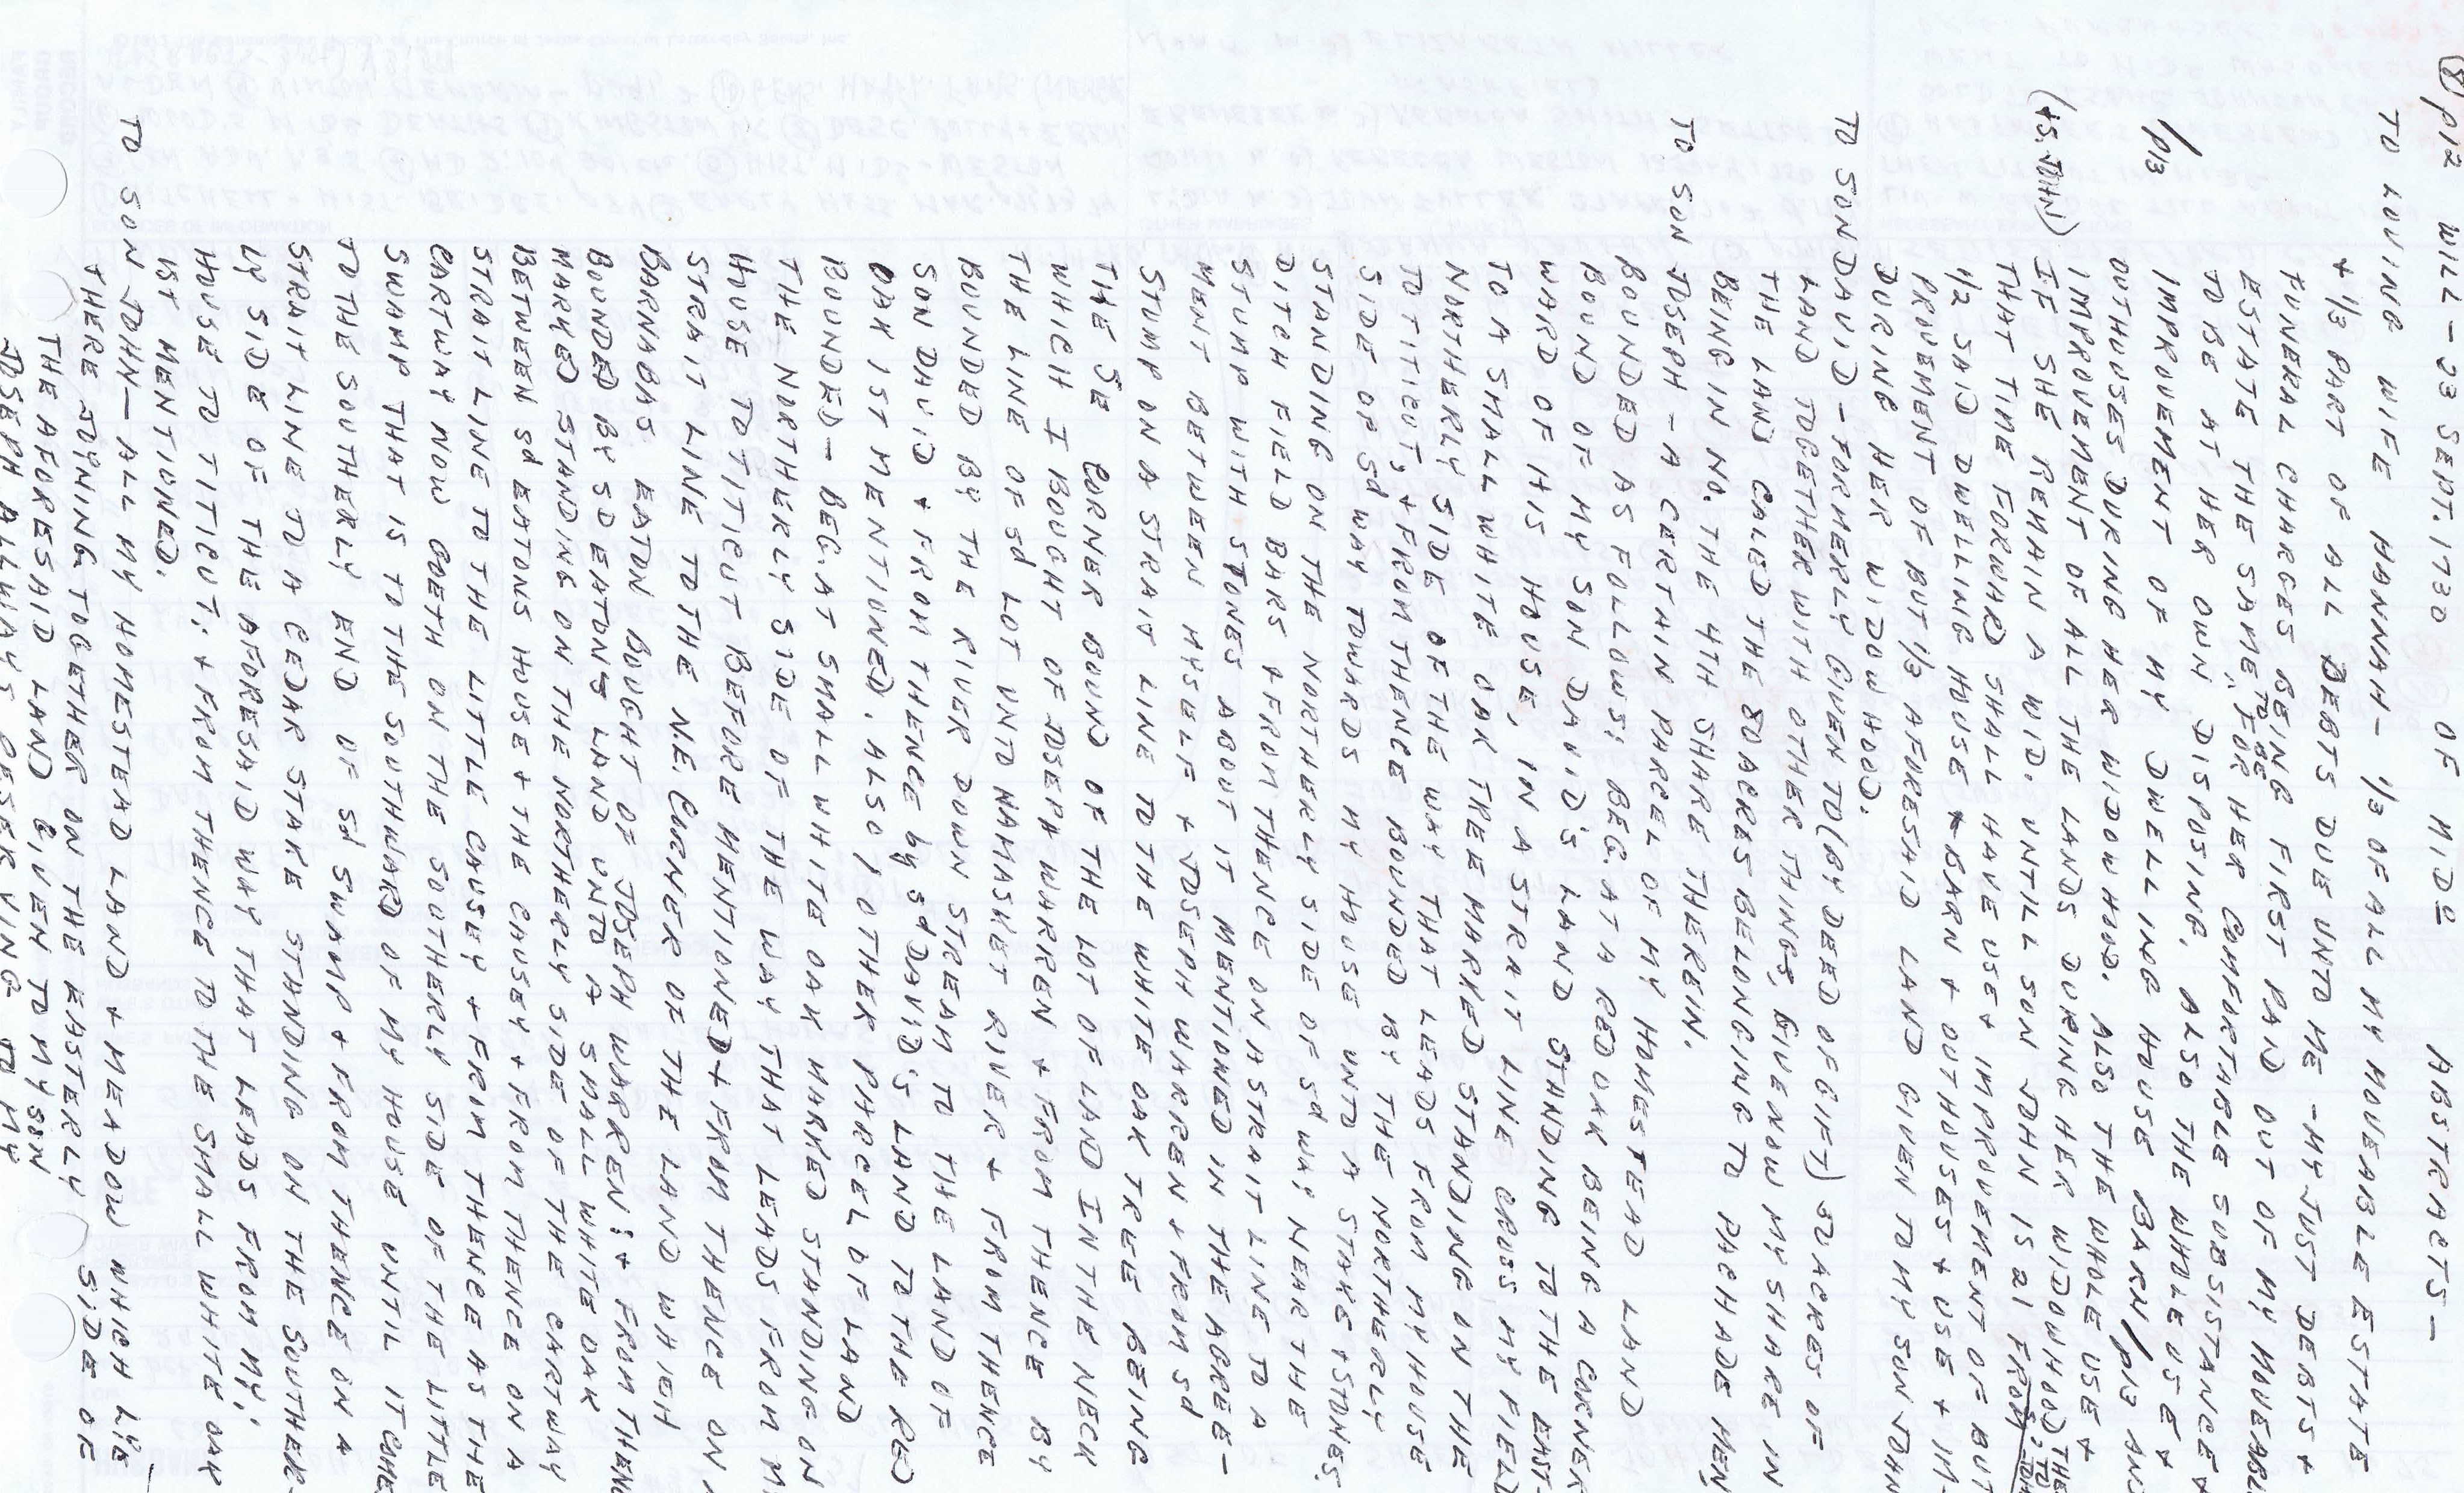 ⑧ p12 WILL - 23 SEPT. 1730 OF MIDD ABSTRACTS -
TO LOVING WIFE HANNAH - 1/3 OF ALL MY MOVEABLE ESTATE
+ 1/3 PART OF ALL DEBTS DUE UNTO ME - MY JUST DEBTS +
FUNERAL CHARGES BEING FIRST PAID OUT OF MY MOVEABLE
ESTATE THE SAME, TO BE FOR HER COMFORTABLE SUBSISTANCE +
TO BE AT HER OWN DISPOSING. ALSO THE WHOLE USE +
/p13 IMPROVEMENT OF MY DWELLING HOUSE BARN /p13 AND
OUTHOUSES DURING HER WIDOWHOOD. ALSO THE WHOLE USE +
IMPROVEMENT OF ALL THE LANDS DURING HER WIDOWHOOD THE
(+S. JOHN) IF SHE REMAIN A WID. UNTILL SON JOHN IS 21 FROM
THAT TIME FORWARD SHALL HAVE USE + IMPROVEMENT OF BUT
1/2 SAID DWELLING HOUSE + BARN + OUTHOUSES + USE + IM-
PROVEMENT OF BUT 1/3 AFORESAID LAND GIVEN TO MY SON JOHN
DURING HER WIDOWHOOD.
TO SON DAVID - FORMERLY GIVEN TO (BY DEED OF GIFT) 50 ACRES OF
LAND TOGETHER WITH OTHER THINGS, GIVE NOW MY SHARE IN
THE LAND CALED THE 80 ACRES BELONGING TO PACHADE MEN
BEING IN NO. THE 4TH SHARE THEREIN.
TO SON JOSEPH - A CERTAIN PARCEL OF MY HOMESTEAD LAND
BOUNDED AS FOLLOWS; BEG. AT A RED OAK BEING A CORNER
BOUND OF MY SON DAVID'S LAND STANDING TO THE EAST-
WARD OF HIS HOUSE, IN A STRAIT LINE CROSS MY FIELD
TO A SMALL WHITE OAK TREE MARKED STANDING ON THE
NORTHERLY SIDE OF THE WAY THAT LEADS FROM MY HOUSE
TO TITICUT, + FROM THENCE BOUNDED BY THE NORTHERLY
SIDE OF Sd WAY TOWARDS MY HOUSE UNTO A STAKE + STONES
STANDING ON THE NORTHERLY SIDE OF Sd WAY NEAR THE
DITCH FIELD BARS + FROM THENCE ON A STRAIT LINE TO A
STUMP WITH STONES ABOUT IT MENTIONED IN THE AGREE-
MENT BETWEEN MYSELF + JOSEPH WARREN + FROM Sd
STUMP ON A STRAIT LINE TO THE WHITE OAK TREE BEING
THE SE CORNER BOUND OF THE LOT OF LAND IN THE NECK
WHICH I BOUGHT OF JOSEPH WARREN + FROM THENCE BY
THE LINE OF Sd LOT UNTO NAMASKET RIVER + FROM THENCE
BOUNDED BY THE RIVER DOWN STREAM TO THE LAND OF
SON DAVID + FROM THENCE by Sd DAVID'S LAND TO THE RED
OAK 1ST MENTIONED. ALSO 1 OTHER PARCEL OF LAND
BOUNDED - BEG. AT SMALL WHITE OAK MARKED STANDING ON
THE NORTHERLY SIDE OF THE WAY THAT LEADS FROM M
HOUSE TO TITICUT BEFORE MENTIONED + FROM THENCE ON
STRAIT LINE TO THE N.E. CORNER OF THE LAND WHICH
BARNABAS EATON BOUGHT OF JOSEPH WARREN; + FROM THENC
BOUNDED BY SD EATON'S LAND UNTO A SMALL WHITE OAK
MARKED STANDING ON THE NORTHERLY SIDE OF THE CARTWAY
BETWEEN Sd EATONS HOUSE + THE CAUSEY + FROM THENCE ON A
STRAIT LINE TO THE LITTLE CAUSEY + FROM THENCE AS THE
CARTWAY NOW GOETH ON THE SOUTHERLY SIDE OF THE LITTLE
SWAMP THAT IS TO THE SOUTHWARD OF MY HOUSE UNTIL IT COME
TO THE SOUTHERLY END OF Sd SWAMP + FROM THENCE ON A
STRAIT LINE TO A CEDAR STAKE STANDING ON THE SOUTHER-
LY SIDE OF THE AFORESAID WAY THAT LEADS FROM MY
HOUSE TO TITICUT; + FROM THENCE TO THE SMALL WHITE OAK
1ST MENTIONED.
TO SON JOHN - ALL MY HOMESTEAD LAND + MEADOW WHICH LYE
THERE JOYNING TOGETHER ON THE EASTERLY SIDE OF
THE AFORESAID LAND GIVEN TO MY SON
JOSEPH ALLWAYS RESERVING TO MY